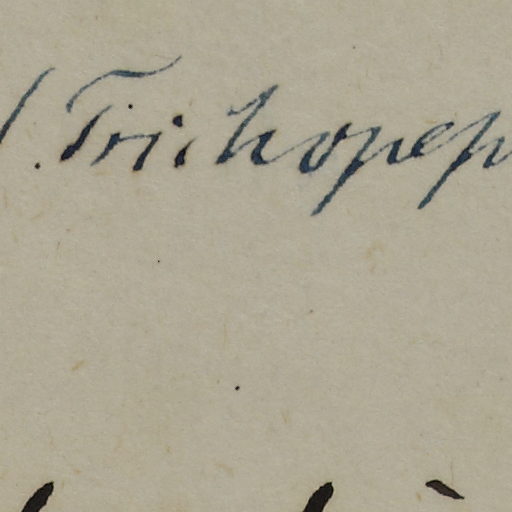 . Trichopep